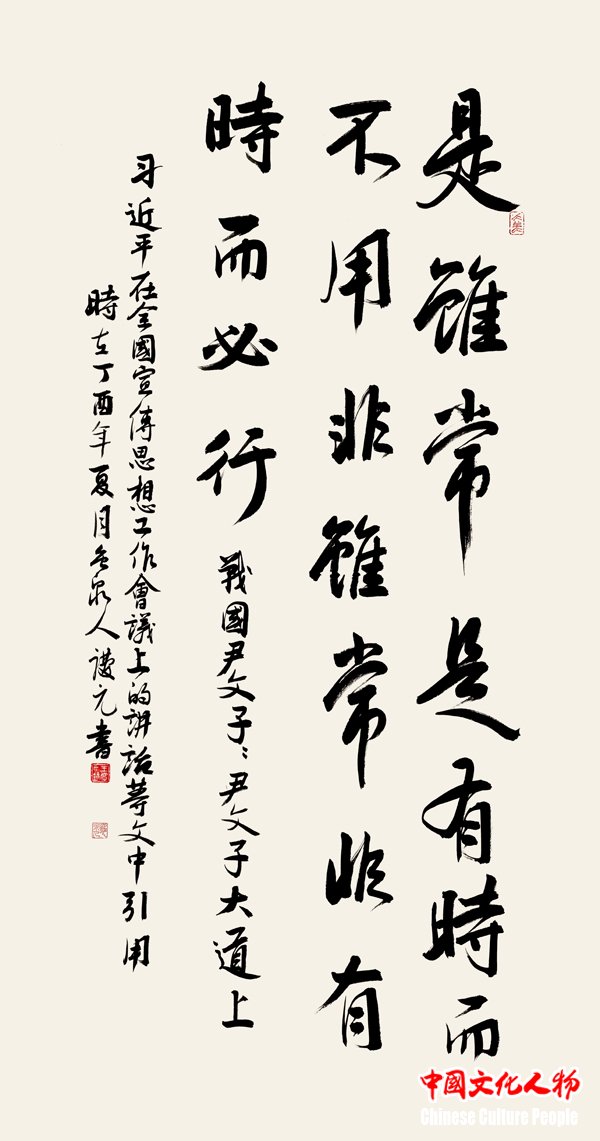 是雖常是有時而
不用非雖常非有
時而必行
戰國尹文子：尹文子大道上
习近平在全國宣傳思想工作會議上的讲話等文中引用
時在丁酉年夏月
人謨元書
中國文化人物
Chinese Culture People